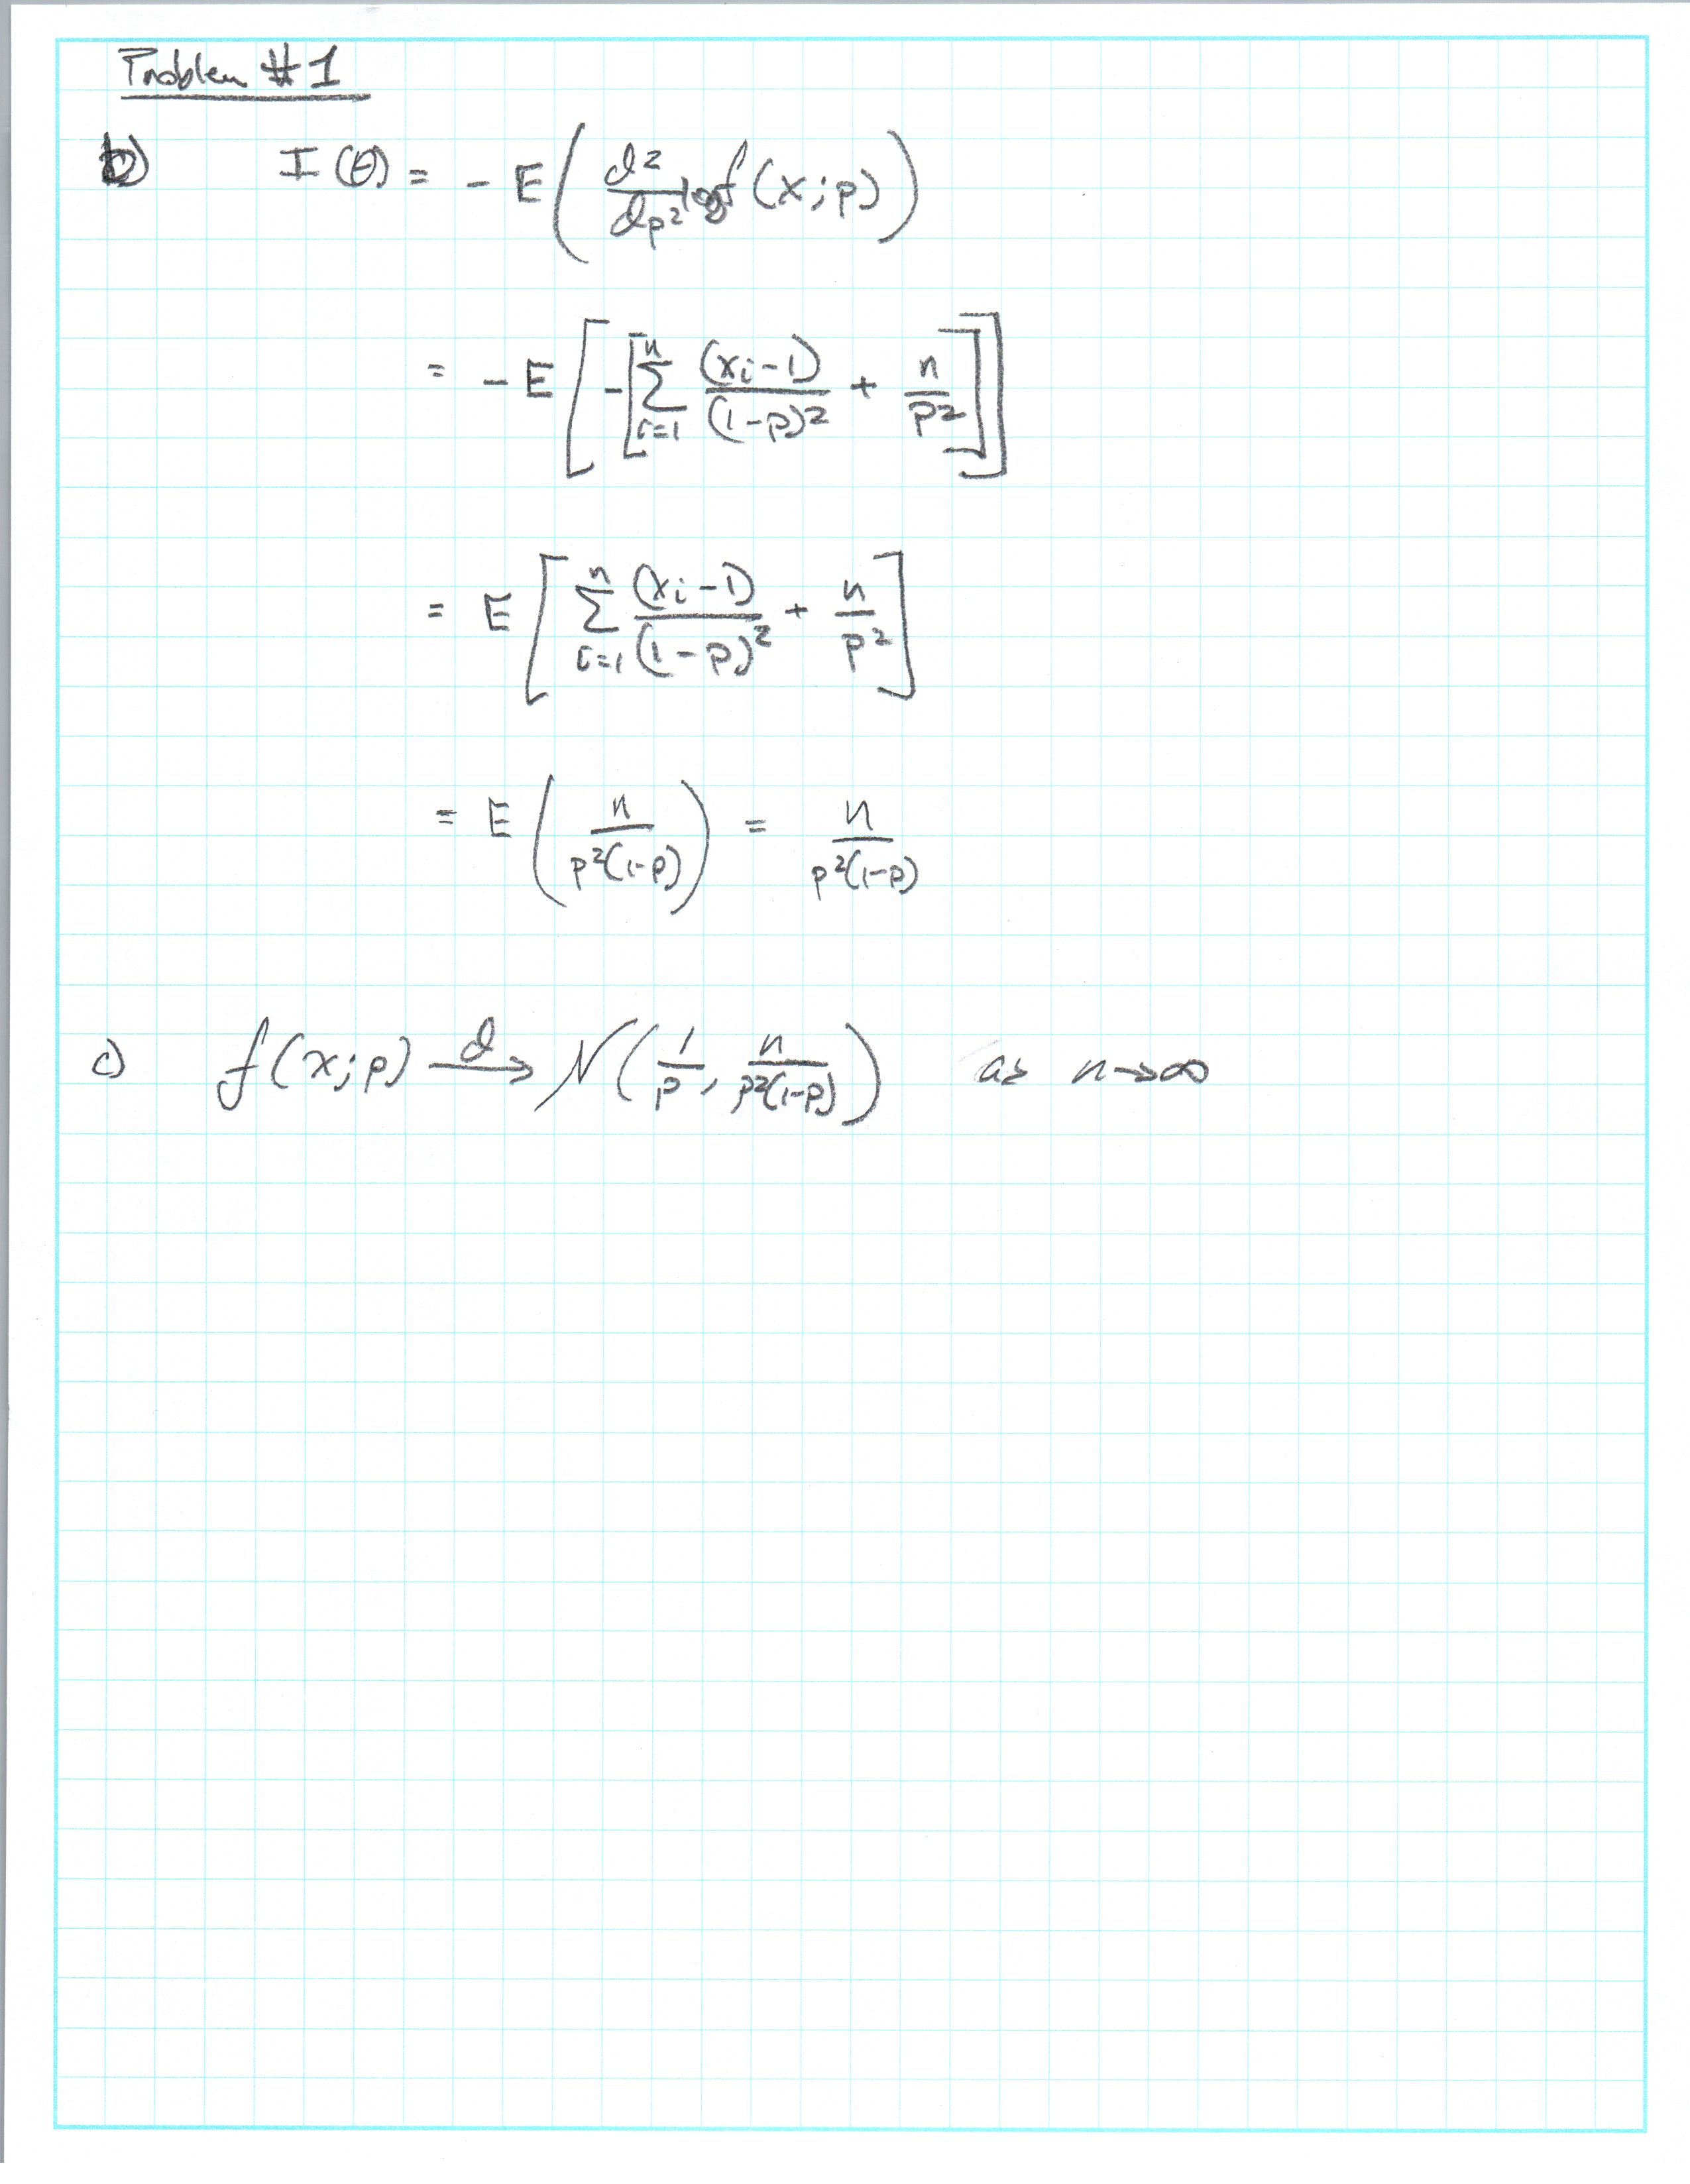 Problem #1
b) I(θ) = - E( d²/dp² log f(x;p) )
= - E[ -[ Σ_{i=1}^{n} (xi-1)/(1-p)² + n/p² ] ]
= E[ Σ_{i=1}^{n} (xi-1)/(1-p)² + n/p² ]
= E( n/p²(1-p) ) = n/p²(1-p)
c) f(x;p) →^d N( 1/p, n/p²(1-p) ) as n→∞